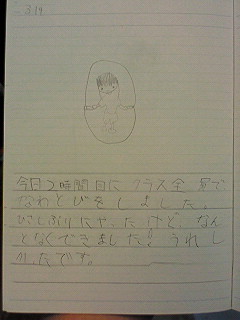 2/19
今日2時間目に クラス全員で、
なわとびをしました。
ひさしぶりにやったけど、なん
となくできました! うれし
かったです。